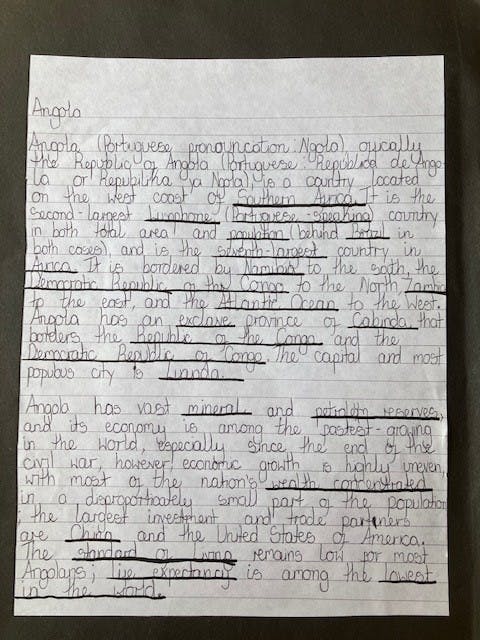 Angola
Angola (Portuguese pronouncation: Ngola) ofically
the Republic of Angola (Portuguese: Republica de Ango-
la or Repubilika ya Ngola), is a country located
on the west coast of Southern Africa. It is the
second-largest Lusophone (Portuguese-speaking) country
in both total area and population (behind Brazil in
both cases) and is the seventh-largest country in
Africa. It is bordered by Namibia to the south, the
Democratic Republic of the Congo to the North Zambia
to the east, and the Atlantic Ocean to the West.
Angola has an exclave province of Cabinda that
borders the Republic of the Congo and the
Democratic Republic of Congo. The capital and most
populous city is Luanda.
Angola has vast mineral and petroleum reserves,
and its economy is among the fastest-growing
in the world, especially since the end of the
civil war, however economic growth is highly uneven,
with most of the nation's wealth concentrated
in a disproportioately small part of the population
the largest investment and trade partners
are China and the United States of America.
The standard of living remains low for most
Angolans, life expectancy is among the lowest
in the world.